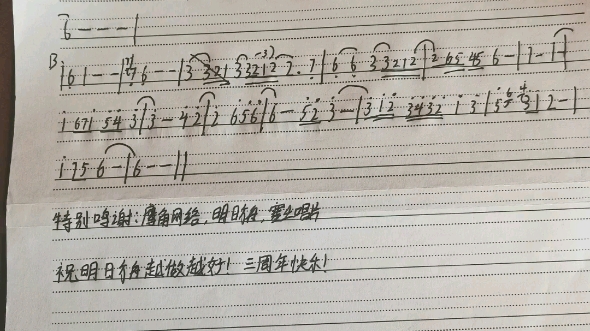 6 - - - |
B
| 6 1 - - | 7 6 - - | 3 3 2 1 3 3 2 1 2 7 . 7 | 6 6 3 3 2 1 2 | 2 6 5 4 5 6 - | 7 - | -
1 6 7 1 5 4 3 | 3 - 4 2 | 2 6 5 6 | 6 - 5 2 3 - | 3 1 2 3 4 3 2 1 3 | 5 3 | 2 - |
1 7 5 6 - | 6 - - ||
特别鸣谢:鹰角网络,明日方舟,塞壬唱片
祝明日方舟越做越好!三周年快乐!